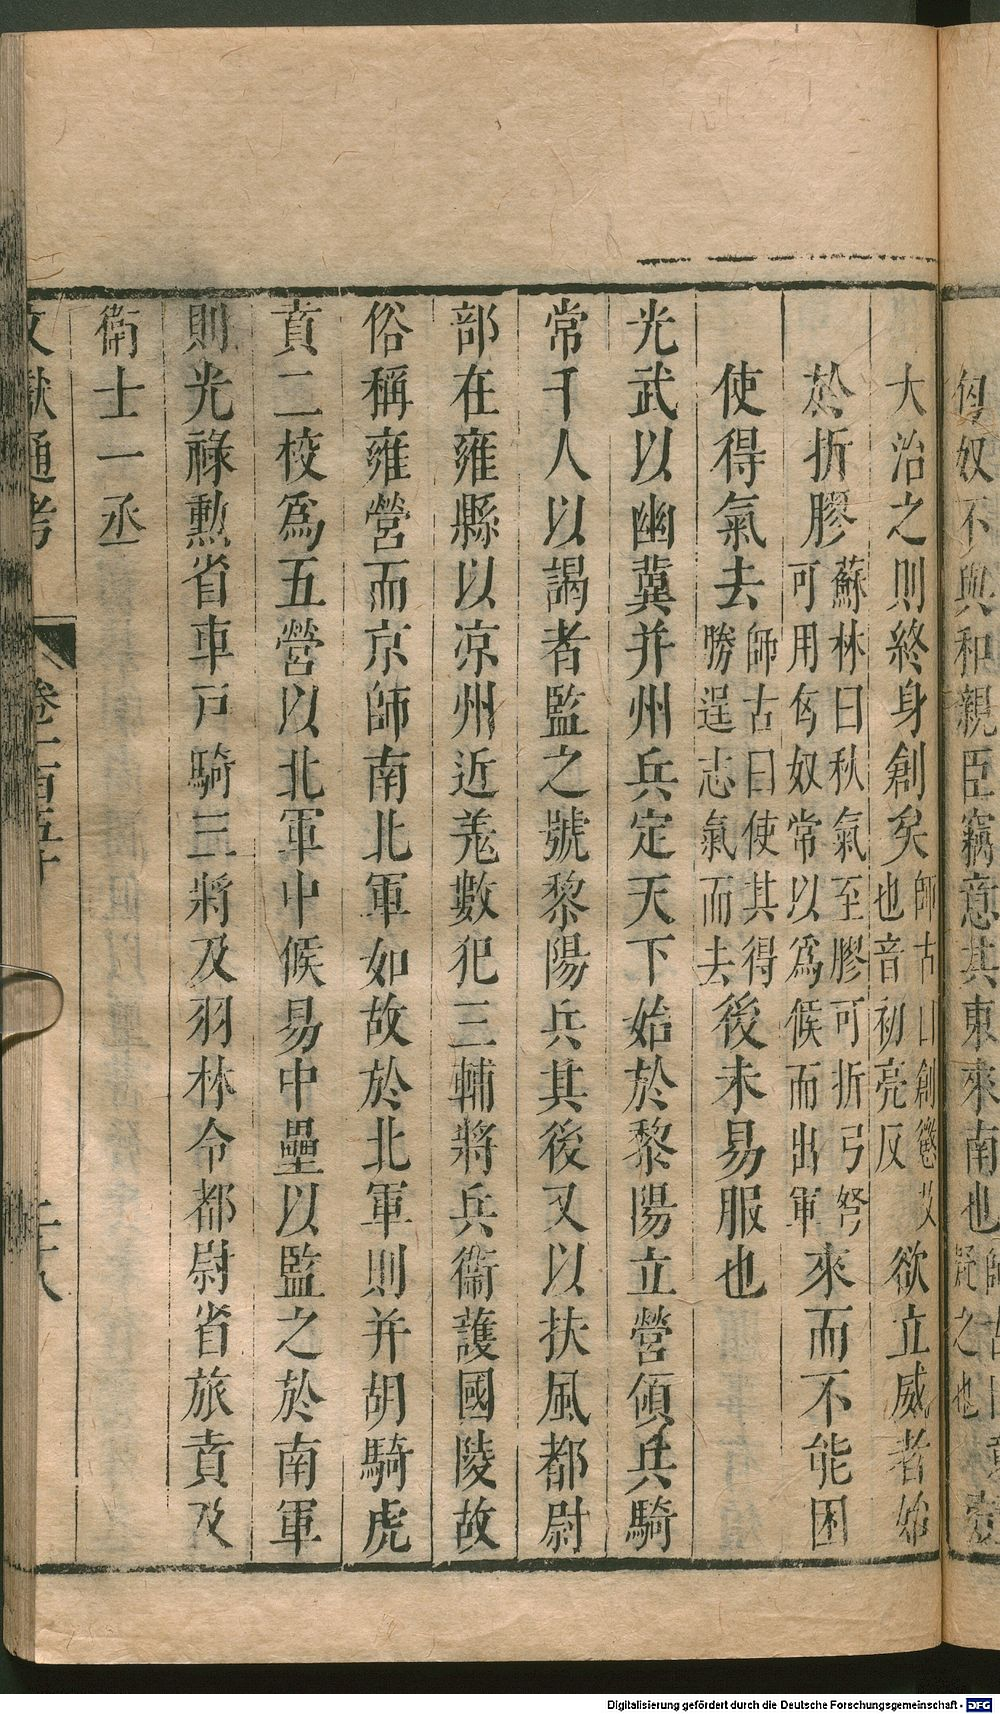 匈奴不與和親臣竊意其東來南也
大治之則終身創矣師古曰創懲艾也音初亮反欲立威者始
於折膠蘇林曰秋氣至膠可折弓弩可用匈奴常以爲候而出軍來而不能困
使得氣去師古曰使其得勝逞志氣而去後未易服也
光武以幽冀并州兵定天下始於黎陽立營傾兵騎
常千人以謁者監之號黎陽兵其後又以扶風都尉
部在雍縣以凉州近羗數犯三輔將兵衞護國陵故
俗稱雍營而京師南北軍如故於北軍則并胡騎虎
賁二校爲五營以北軍中候易中壘以監之於南軍
則光祿勲省車戸騎三將及羽林令都尉省旅賁及
衛士一丞
文獻通考
卷一百五十
二十八
Digitalisierung gefördert durch die Deutsche Forschungsgemeinschaft - DFG